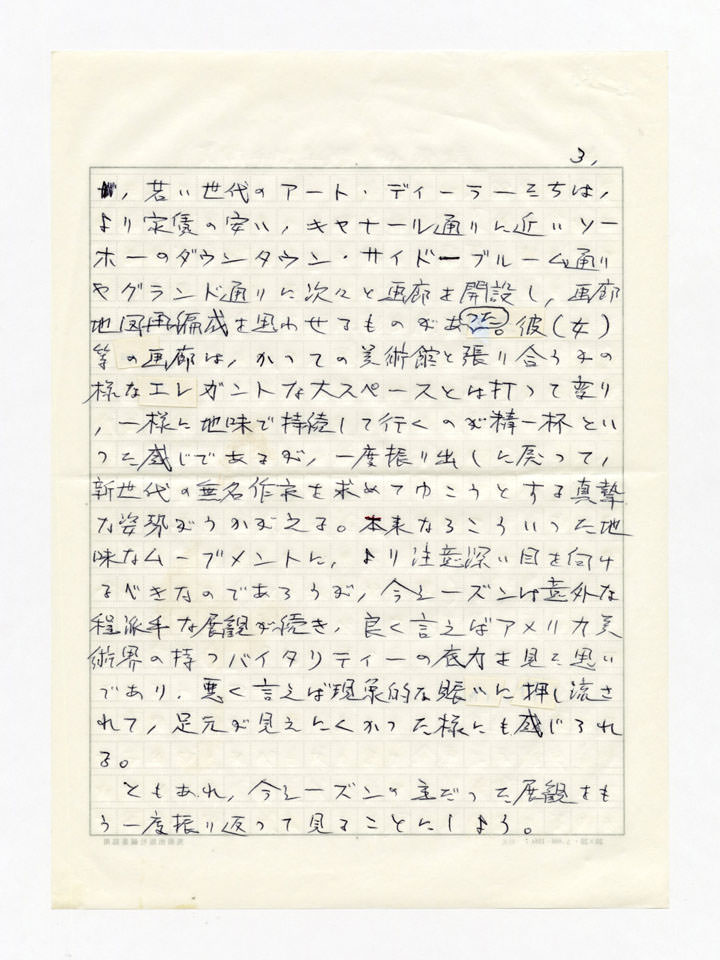 3.
が、若い世代のアート・ディーラーたちは、
より家賃の安い、キャナール通りに近いソー
ホーのダウンタウン・サイド―ブルーム通り
やグランド通りに次々と画廊を開設し、画廊
地図再編成を思わせるものがあった。彼(女)
等の画廊は、かつての美術館と張り合うその
様なエレガントな大スペースとは打って変り
、一様に地味で持続して行くのが精一杯とい
った感じであるが、一度振り出しに戻って、
新世代の無名作家を求めてゆこうとする真摯
な姿勢がうかがえる。本来ならこういった地
味なムーブメントに、より注意深い目を向け
るべきなのであろうが、今シーズンは意外な
程派手な展観が続き、良く言えばアメリカ美
術界の持つバイタリティーの底力を見る思い
であり、悪く言えば現象的な賑いに押し流さ
れて、足元が見えにくかった様にも感じられ
る。
ともあれ、今シーズンの主だった展観をも
う一度振り返って見ることにしよう。